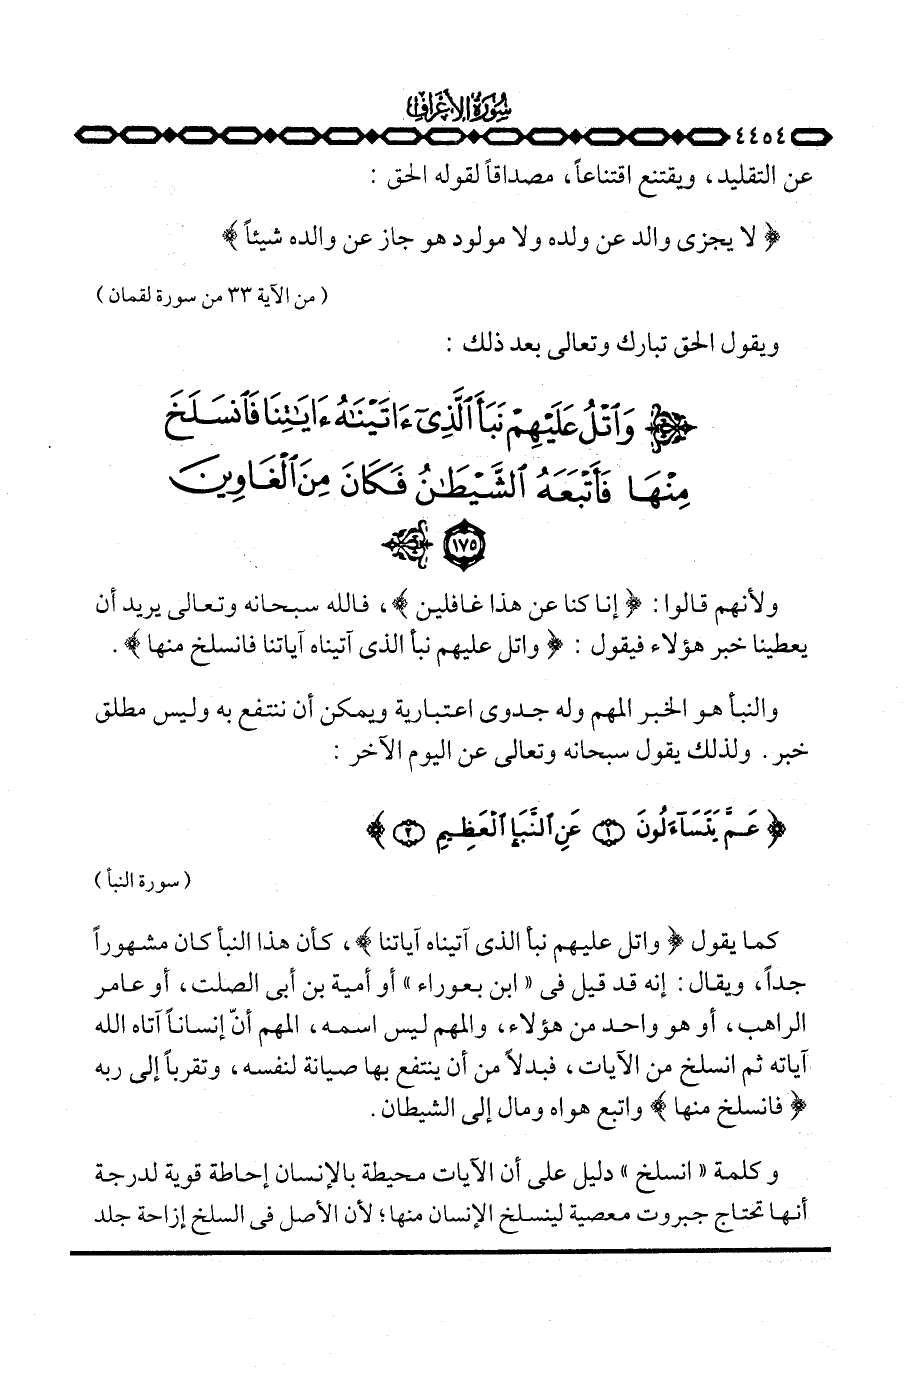 سورة الأعراف
٤٤٥٤
عن التقليد، ويقتنع اقتناعاً، مصداقاً لقوله الحق :
﴿ لا يجزى والد عن ولده ولا مولود هو جاز عن والده شيئاً ﴾
( من الآية ٣٣ من سورة لقمان )
ويقول الحق تبارك وتعالى بعد ذلك :
﴿ وَٱتْلُ عَلَيْهِمْ نَبَأَ ٱلَّذِىٓ ءَاتَيْنَٰهُ ءَايَٰتِنَا فَٱنسَلَخَ
مِنْهَا فَأَتْبَعَهُ ٱلشَّيْطَٰنُ فَكَانَ مِنَ ٱلْغَاوِينَ
١٧٥ ﴾
ولأنهم قالوا : ﴿ إنا كنا عن هذا غافلين ﴾، فالله سبحانه وتعالى يريد أن
يعطينا خبر هؤلاء فيقول : ﴿ واتل عليهم نبأ الذى آتيناه آياتنا فانسلخ منها ﴾ .
والنبأ هو الخبر المهم وله جدوى اعتبارية ويمكن أن ننتفع به وليس مطلق
خبر . ولذلك يقول سبحانه وتعالى عن اليوم الآخر :
﴿ عَمَّ يَتَسَآءَلُونَ ١ عَنِ ٱلنَّبَإِ ٱلْعَظِيمِ ٢ ﴾
( سورة النبأ )
كما يقول ﴿ واتل عليهم نبأ الذى آتيناه آياتنا ﴾، كأن هذا النبأ كان مشهوراً
جداً، ويقال : إنه قد قيل فى « ابن بعوراء » أو أمية بن أبى الصلت، أو عامر
الراهب، أو هو واحد من هؤلاء، والمهم ليس اسمه، المهم أنّ إنساناً آتاه الله
آياته ثم انسلخ من الآيات، فبدلاً من أن ينتفع بها صيانة لنفسه، وتقرباً إلى ربه
﴿ فانسلخ منها ﴾ واتبع هواه ومال إلى الشيطان .
وكلمة « انسلخ » دليل على أن الآيات محيطة بالإنسان إحاطة قوية لدرجة
أنها تحتاج جبروت معصية لينسلخ الإنسان منها؛ لأن الأصل فى السلخ إزاحة جلد